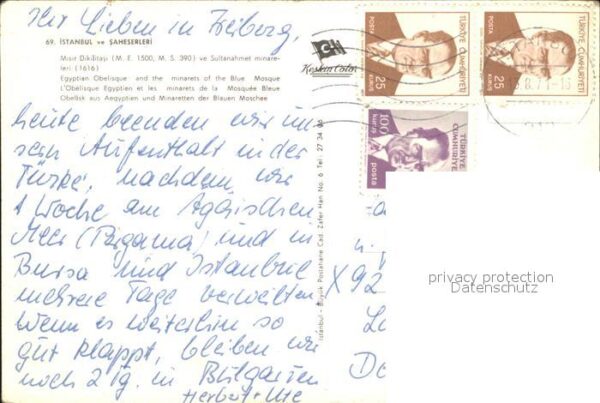 Ihr Lieben in Freiberg,
69. İSTANBUL ve ŞAHESERLERİ
Mısır Dikilitaşı (M. E. 1500, M. S. 390) ve Sultanahmet minare-
leri (1616)
Egyptian Obelisque and the minarets of the Blue Mosque
L'Obélisque Egyptien et les minarets de la Mosquée Bleue
Obelisk aus Aegyptien und Minaretten der Blauen Moschee
Keskin Color
TÜRKİYE CUMHURİYETİ
POSTA
25
KURUŞ
TÜRKİYE CUMHURİYETİ
POSTA
25
KURUŞ
TÜRKİYE
CUMHURİYETİ
100
kuruş
posta
heute beenden wir un
sern Aufenthalt in der
Türkei, nachdem wir
1 Woche am Ägäischen
Meer (Pergama) und in
Bursa und Istanbul
mehrere Tage verweilten
Wenn es weiterhin so
gut klappt, bleiben wir
noch 2 Tg. in Bulgarien
Herbert + Ute
İstanbul - Büyük Postahane Cad. Zafer Han No. 6 Tel: 27 34 86
X92
privacy protection
Datenschutz